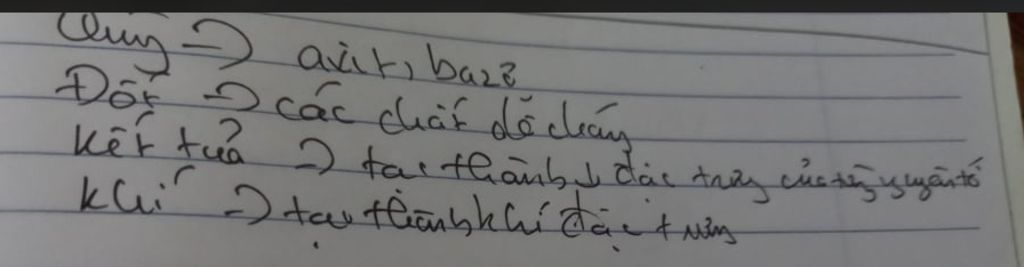 => axit, bazơ
Đốt => các chất dễ cháy
Kết tủa => tạo thành ↓ đặc trưng của từng nguyên tố
Khí => tạo thành khí đặc trưng